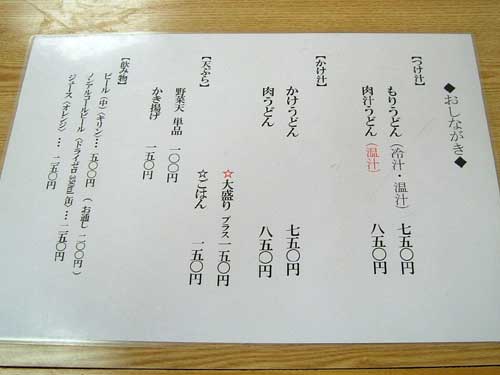 ◆おしながき◆
【つけ汁】
もりうどん(冷汁・温汁) 七五〇円
肉汁うどん(温汁) 八五〇円
【かけ汁】
かけうどん 七五〇円
肉うどん 八五〇円
☆大盛り プラス一五〇円
☆ごはん 一五〇円
【天ぷら】
野菜天 単品 一〇〇円
かき揚げ 一五〇円
【飲み物】
ビール(中)(キリン)… 五〇〇円
ノンアルコールビール(ドライゼロ350ml缶)…二五〇円
(お通し 一〇〇円)
ジュース(オレンジ)… 二五〇円